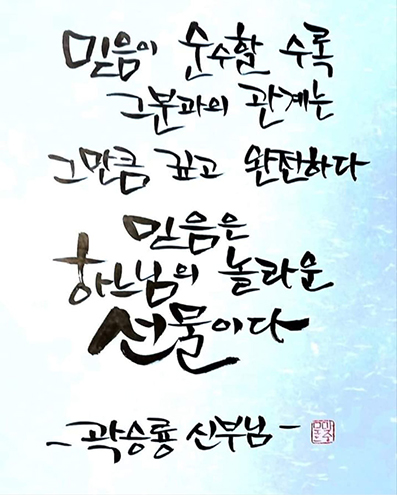 믿음이 순수할 수록
그분과의 관계는
그만큼 깊고 완전하다
믿음은
하느님의 놀라운
선물이다
- 곽승룡 신부님 -